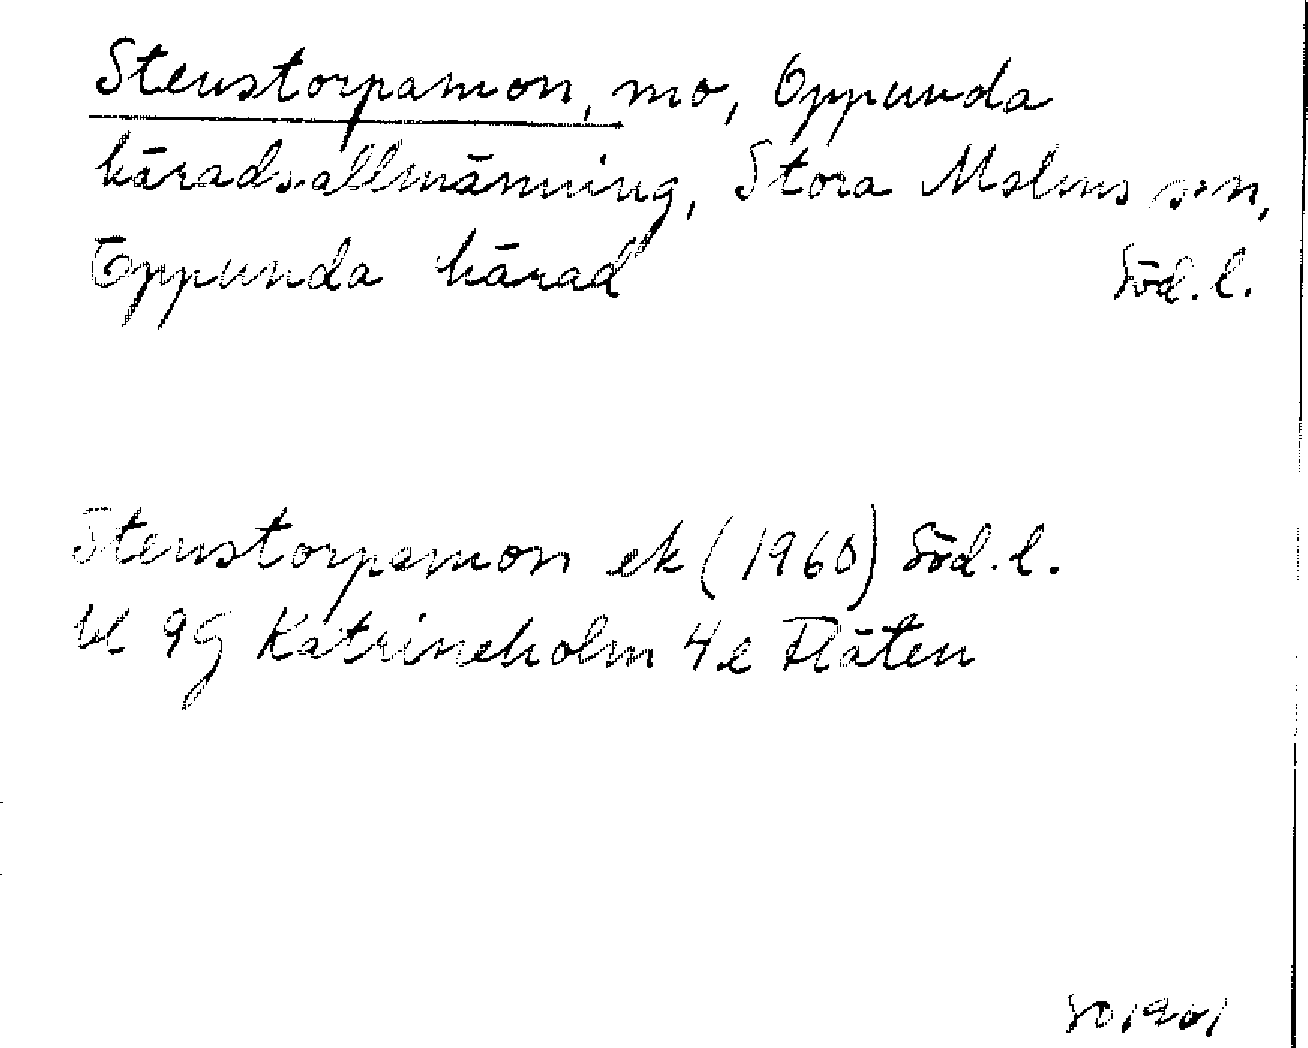 Stenstorpamon, mo, Oppunda
häradsallmänning, Stora Malms sn,
Oppunda härad Söd.l.
Stenstorpamon ek (1960) Söd.l.
bl 9G Katrineholm 4e Flåten